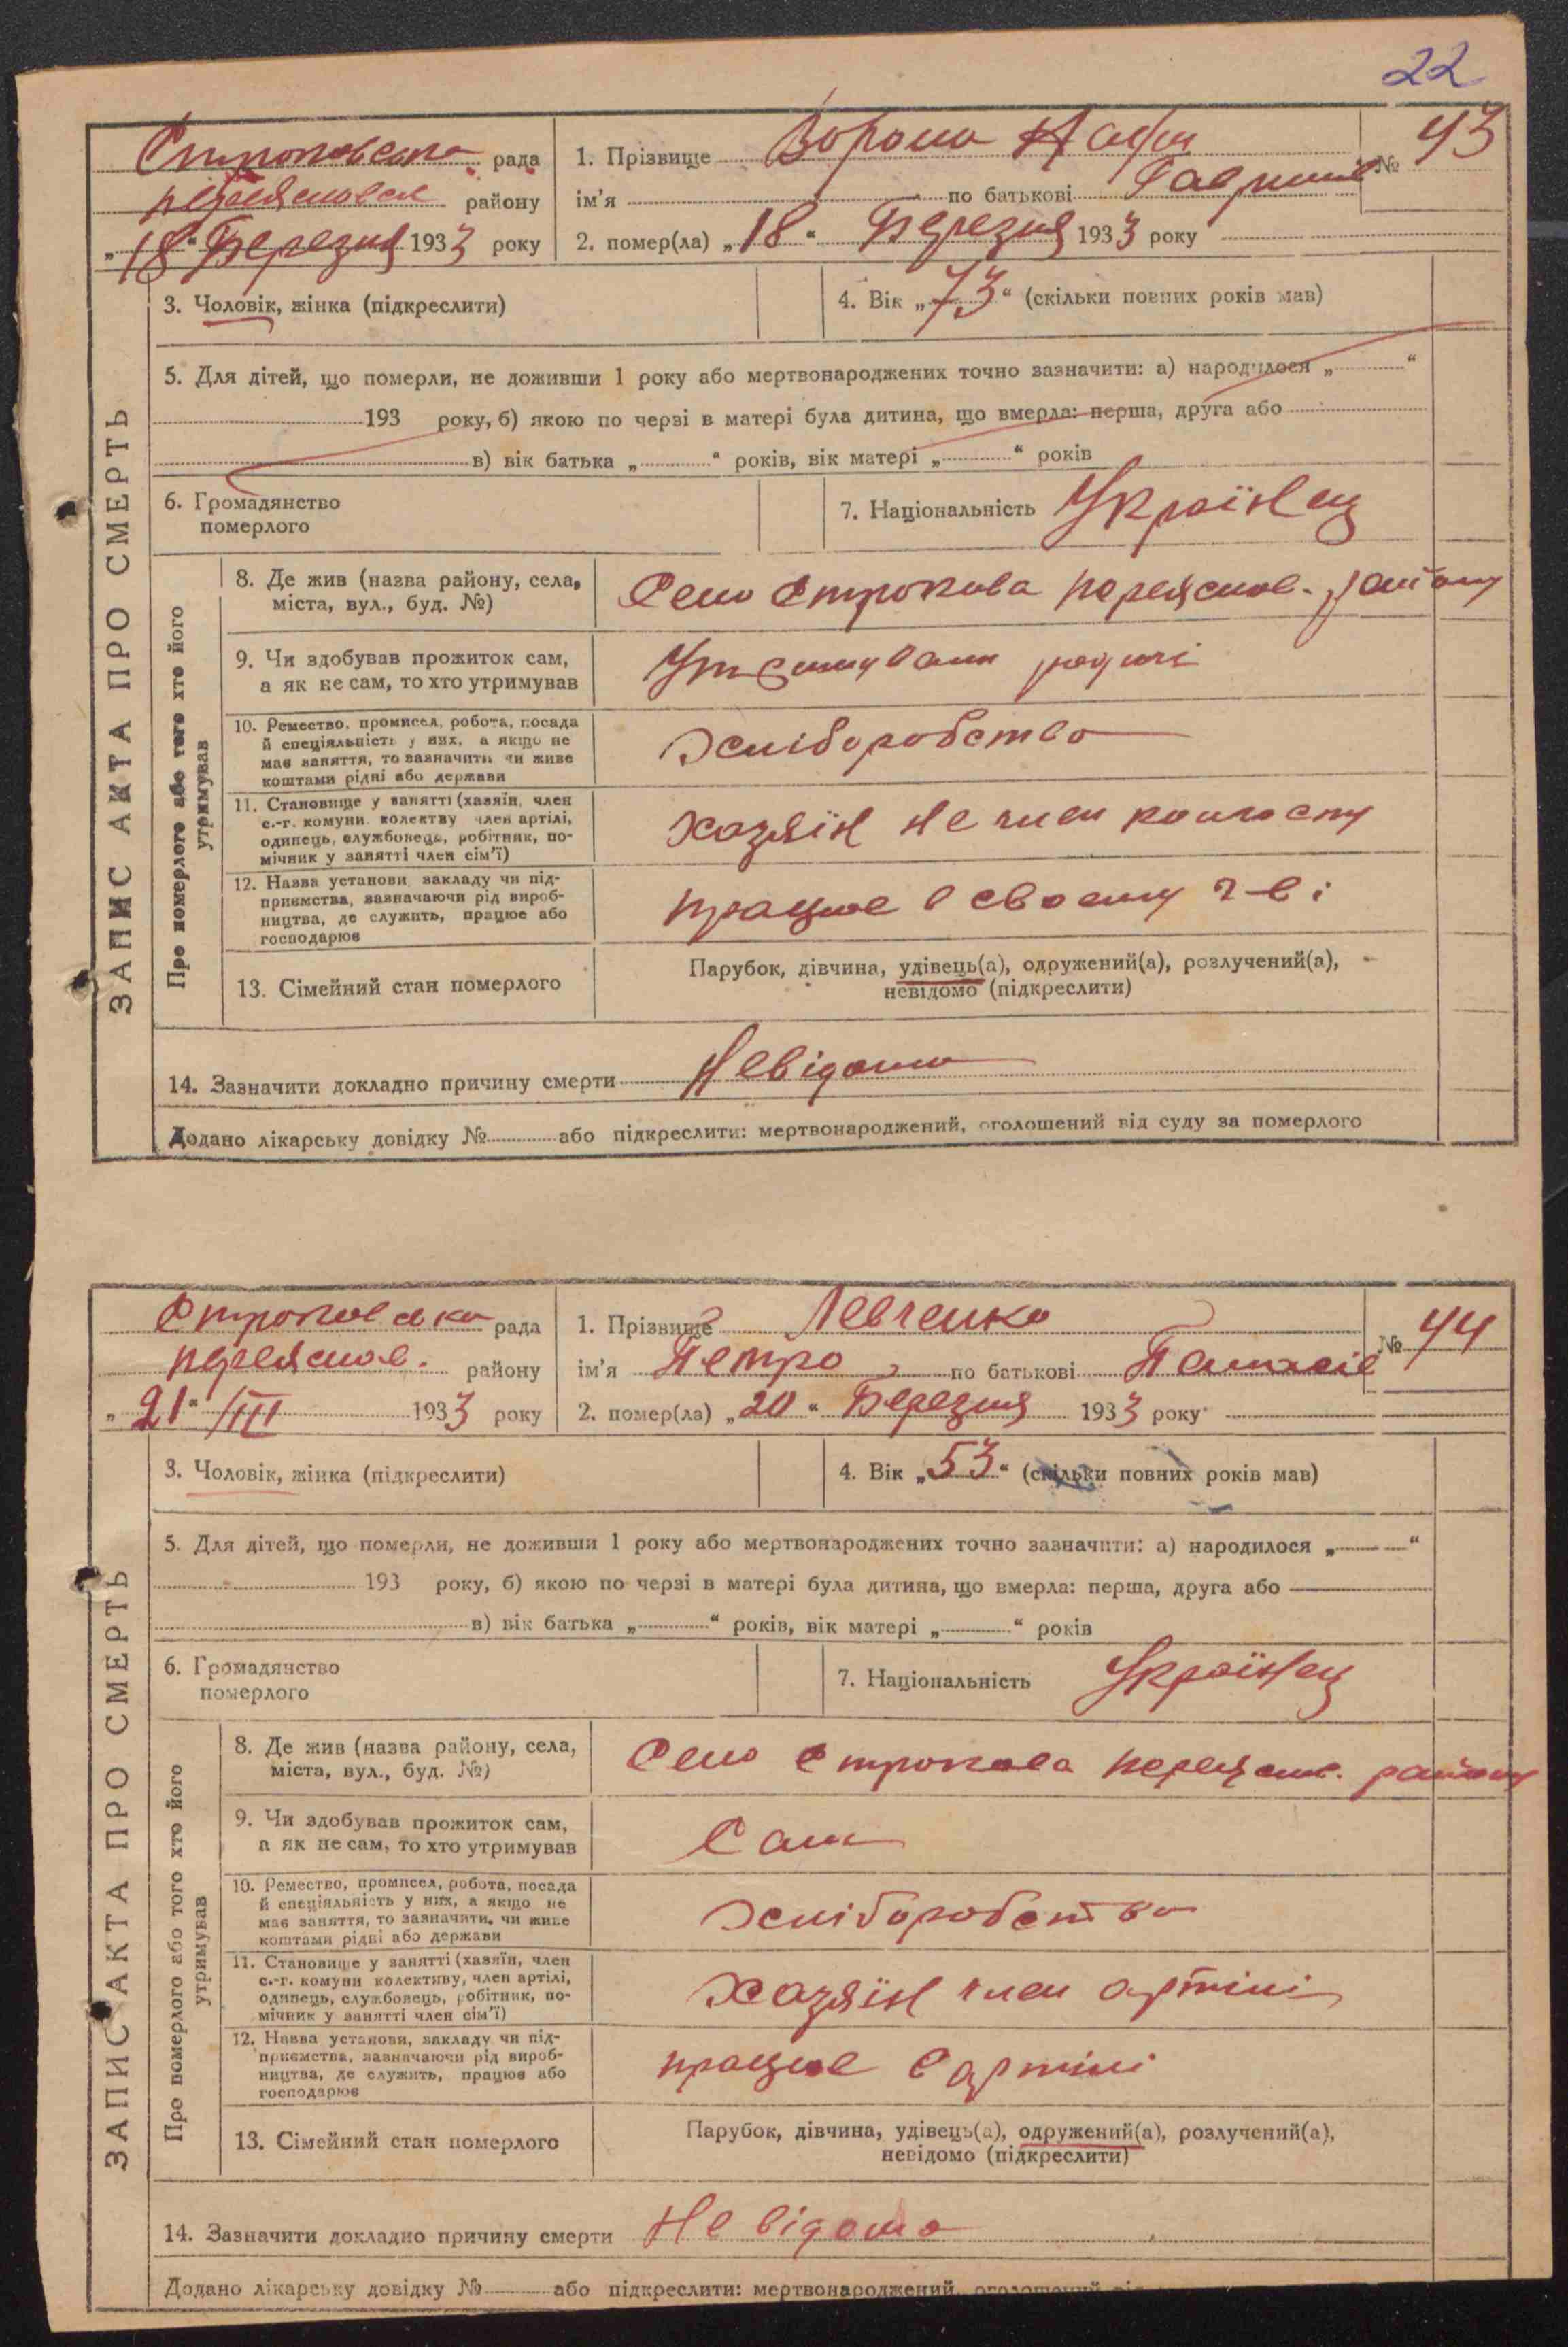 22
ЗАПИС АКТА ПРО СМЕРТЬ
Строковська рада
переяславск району
„18“ Березня 1933 року
1. Прізвище Ворона
№ 43
ім’я по батькові Гаврил
2. помер(ла) „18“ Березня 1933 року
3. Чоловік, жінка (підкреслити)
4. Вік „73“ (скільки повних років мав)
5. Для дітей, що померли, не доживши 1 року або мертвонароджених точно зазначити: а) народилося „ “
193 року, б) якою по черзі в матері була дитина, що вмерла: перша, друга або
в) вік батька „ “ років, вік матері „ “ років
6. Громадянство
померлого
7. Національність Українец
Про померлого або того хто його
утримував
8. Де жив (назва району, села,
міста, вул., буд. №)
Село Строкова переяслов. району
9. Чи здобував прожиток сам,
а як не сам, то хто утримував
Утримували родичі
10. Ремество, промисел, робота, посада
й спеціяльність у них, а якщо не
має заняття, то зазначити чи живе
коштами рідні або держави
Хліборобство
11. Становище у занятті (хазяїн, член
с.-г. комуни колектву член артілі,
одинець, службовець, робітник, по-
мічник у занятті член сім’ї)
хазяїн не член колгоспу
12. Назва установи закладу чи під-
приємства, зазначаючи рід вироб-
ництва, де служить, працює або
господарює
працює в своєму г-ві
13. Сімейний стан померлого
Парубок, дівчина, удівець(а), одружений(а), розлучений(а),
невідомо (підкреслити)
14. Зазначити докладно причину смерти Невідома
Додано лікарську довідку № або підкреслити: мертвонароджений, оголошений від суду за померлого
ЗАПИС АКТА ПРО СМЕРТЬ
Строковска рада
переяслов. району
„21“ /III 1933 року
1. Прізвище Левченко
№ 44
ім’я Петро по батькові Панасів
2. помер(ла) „20“ Березня 1933 року
3. Чоловік, жінка (підкреслити)
4. Вік „53“ (скільки повних років мав)
5. Для дітей, що померли, не доживши 1 року або мертвонароджених точно зазначити: а) народилося „ “
193 року, б) якою по черзі в матері була дитина, що вмерла: перша, друга або
в) вік батька „ “ років, вік матері „ “ років
6. Громадянство
померлого
7. Національність Українец
Про померлого або того хто його
утримував
8. Де жив (назва району, села,
міста, вул., буд. №)
Село Строкова переясл. району
9. Чи здобував прожиток сам,
а як не сам, то хто утримував
Сам
10. Ремество, промисел, робота, посада
й спеціяльність у них, а якщо не
має заняття, то зазначити, чи живе
коштами рідні або держави
Хліборобство
11. Становище у занятті (хазяїн, член
с.-г. комуни колективу, член артілі,
одинець, службовець, робітник, по-
мічник у занятті член сім’ї)
хазяїн член артілі
12. Назва установи, закладу чи під-
приємства, зазначаючи рід вироб-
ництва, де служить, працює або
господарює
працює в артілі
13. Сімейний стан померлого
Парубок, дівчина, удівець(а), одружений(а), розлучений(а),
невідомо (підкреслити)
14. Зазначити докладно причину смерти Не відома
Додано лікарську довідку № або підкреслити: мертвонароджений,